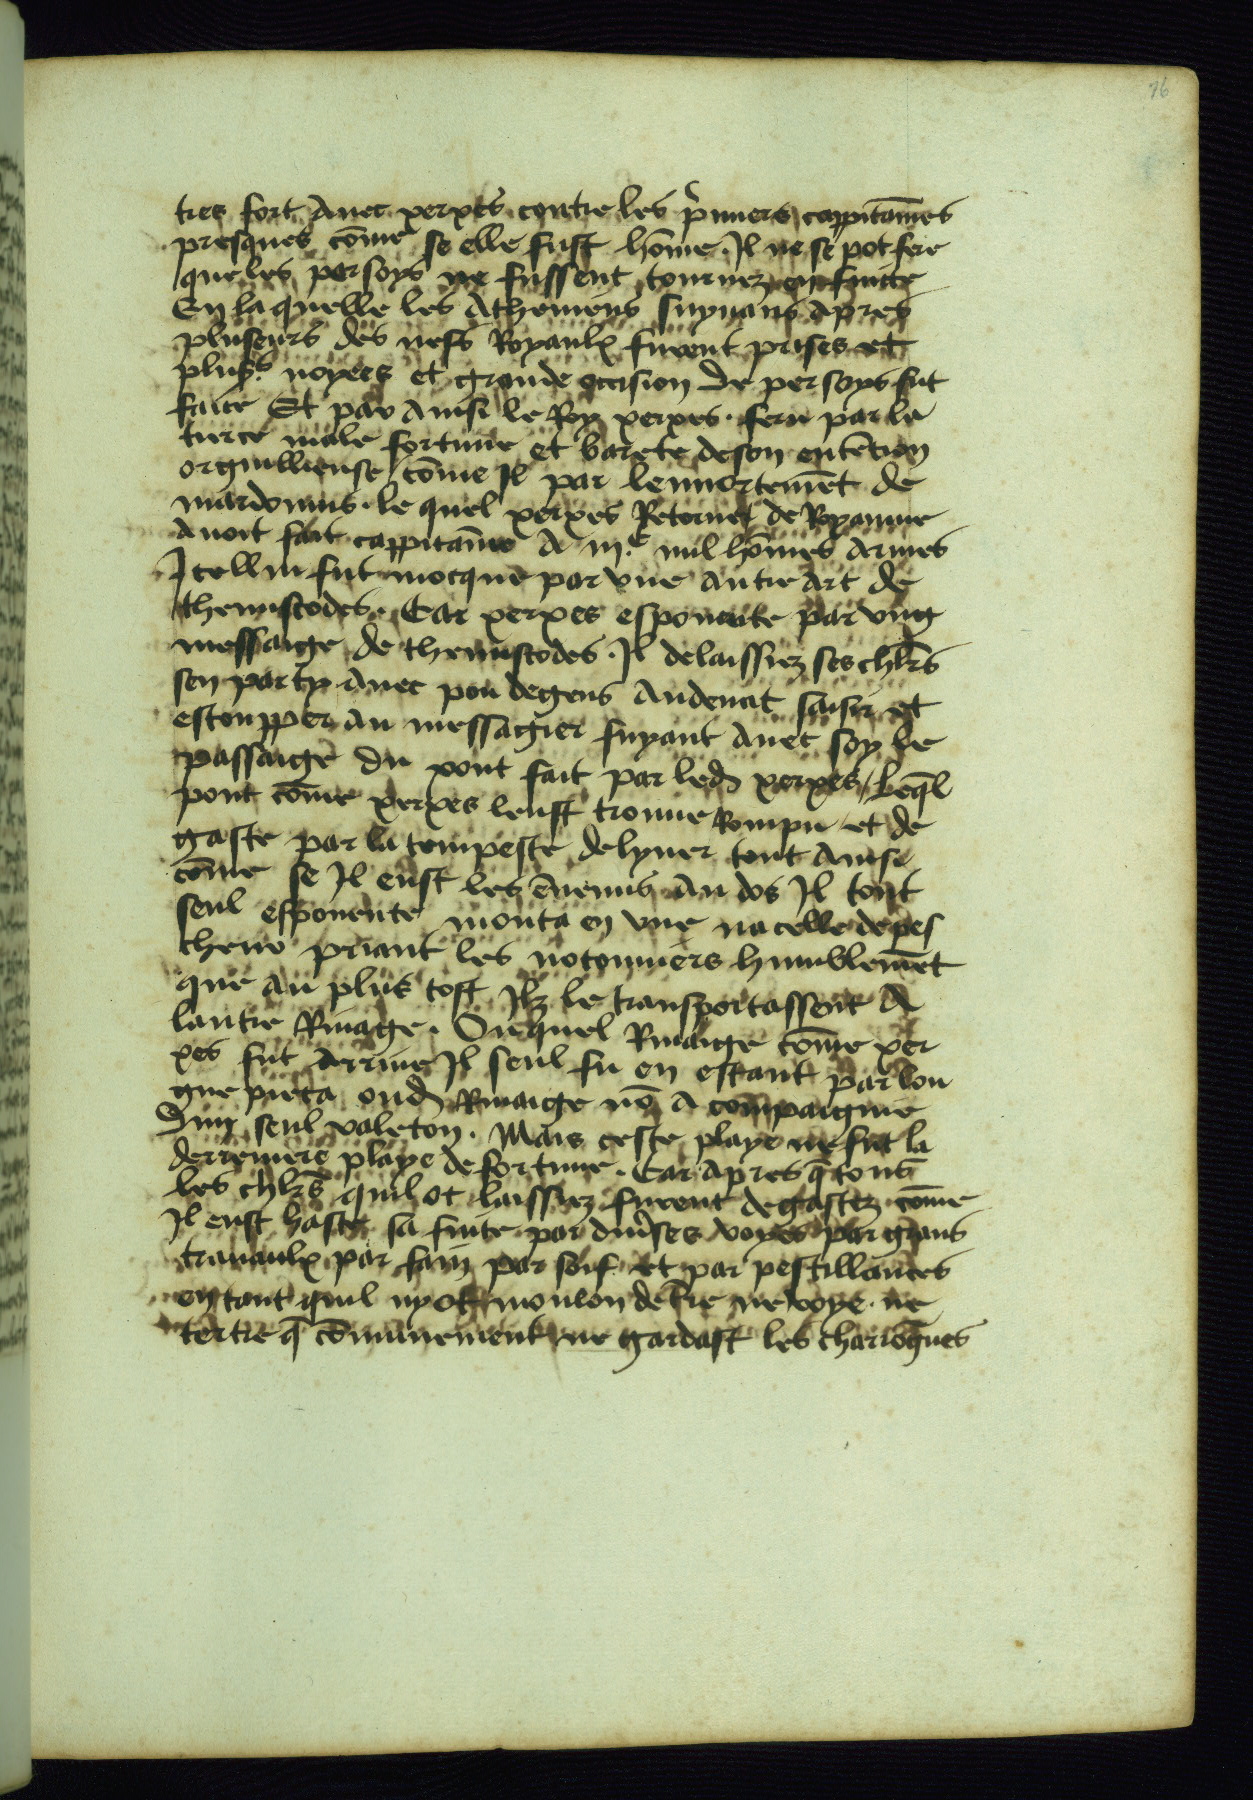 76
tres fort Avec xerxes contre les p̾miers cappitaĩnes
presques cõme se elle fust hõme . Il ne se pot fere
que les persoys ne fussent tournez en fuitte
En la quelle les Atheniens suyuans apres
pluseurs des nefs Royaulx furent prises et
plus̾s noyees et grande occision de persoys fut
faitte Et par Ainsi le Roy xerxes . feru par la
tierce male fortune et barete de son entẽcion
orguilleuse cõme Il par lennortemẽt de
mardonius . le quel xerxes Retornet de Royaume
Auoit fait cappitaĩne A iij.c mil hõmes Armes
Icelluy fut mocque par vne autre Art de
themistodes . Car xerxes esponente par vng
messaige de themistodes . Il delaissiez ses chl̾rs
sen party Auec pou de gens Audeuat saisir et
estoupper au messagier fuyant Auec soy le
passaige du pont fait par led̾ xerxes / Leq̃l
pont cõme xerxes leust trouue Rompu et de
gaste par la tempeste delyuer tout Ainsi
cõme se Il eust les ẽnemis Au dos Il tout
seul esponente monta en vne nacelle de pes
cheur priant les notonniers humblemẽt
que au plus tost Ilz le transportassent A
lautre Riuage . Ouquel Riuaige cõme xer
xes fut Arriue Il seul fu en estant par lon
gue pieca oud̾ Riuaige nõ A compaignie
Dun seul valeton . Mais ceste playe ne fut la
derreniere playe de fortune . Car apres q̃ tous
les chl̾rs quil ot laissiez furent degastez cõme
Il eust haste sa fuite par diu̾ses voyes par grans
trauaulx par faim par soif et par pestillances
en tant quil ny ot mouion de t̾re ne voye . ne
tertre q̃ cõmunement ne gardast les charrognes